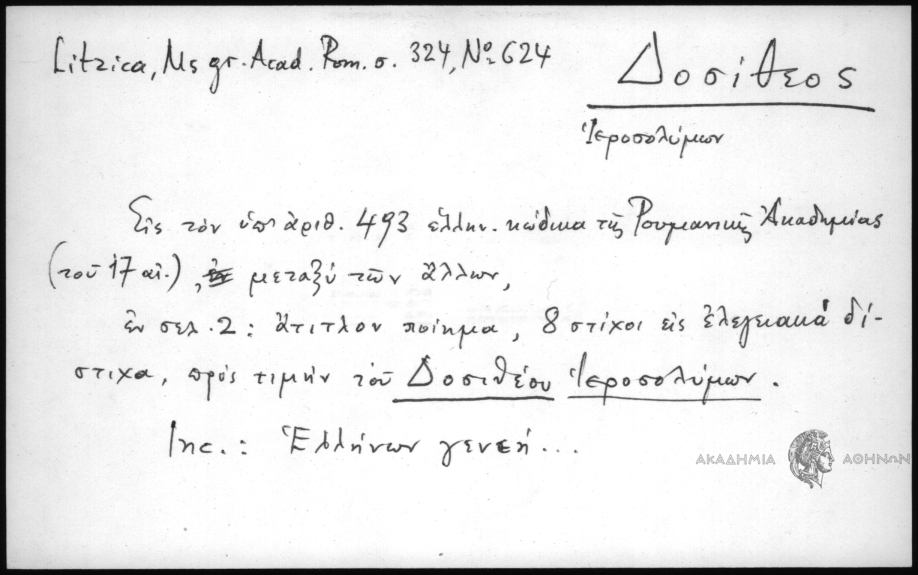 Litzica, Ms gr. Acad. Rom. σ. 324, Nº 624
Δοσίθεος
Ἱεροσολύμων
Εἰς τὸν ὑπ' ἀριθ. 493 ἑλλην. κώδικα τῆς Ρουμανικῆς Ἀκαδημίας
(τοῦ 17 αἰ.), μεταξὺ τῶν ἄλλων,
ἐν σελ. 2: ἄτιτλον ποίημα, 8 στίχοι εἰς ἐλεγειακὰ δί-
στιχα, πρὸς τιμὴν τοῦ Δοσιθέου Ἱεροσολύμων.
Inc.: Ἑλλήνων γενεή...
ΑΚΑΔΗΜΙΑ ΑΘΗΝΩΝ